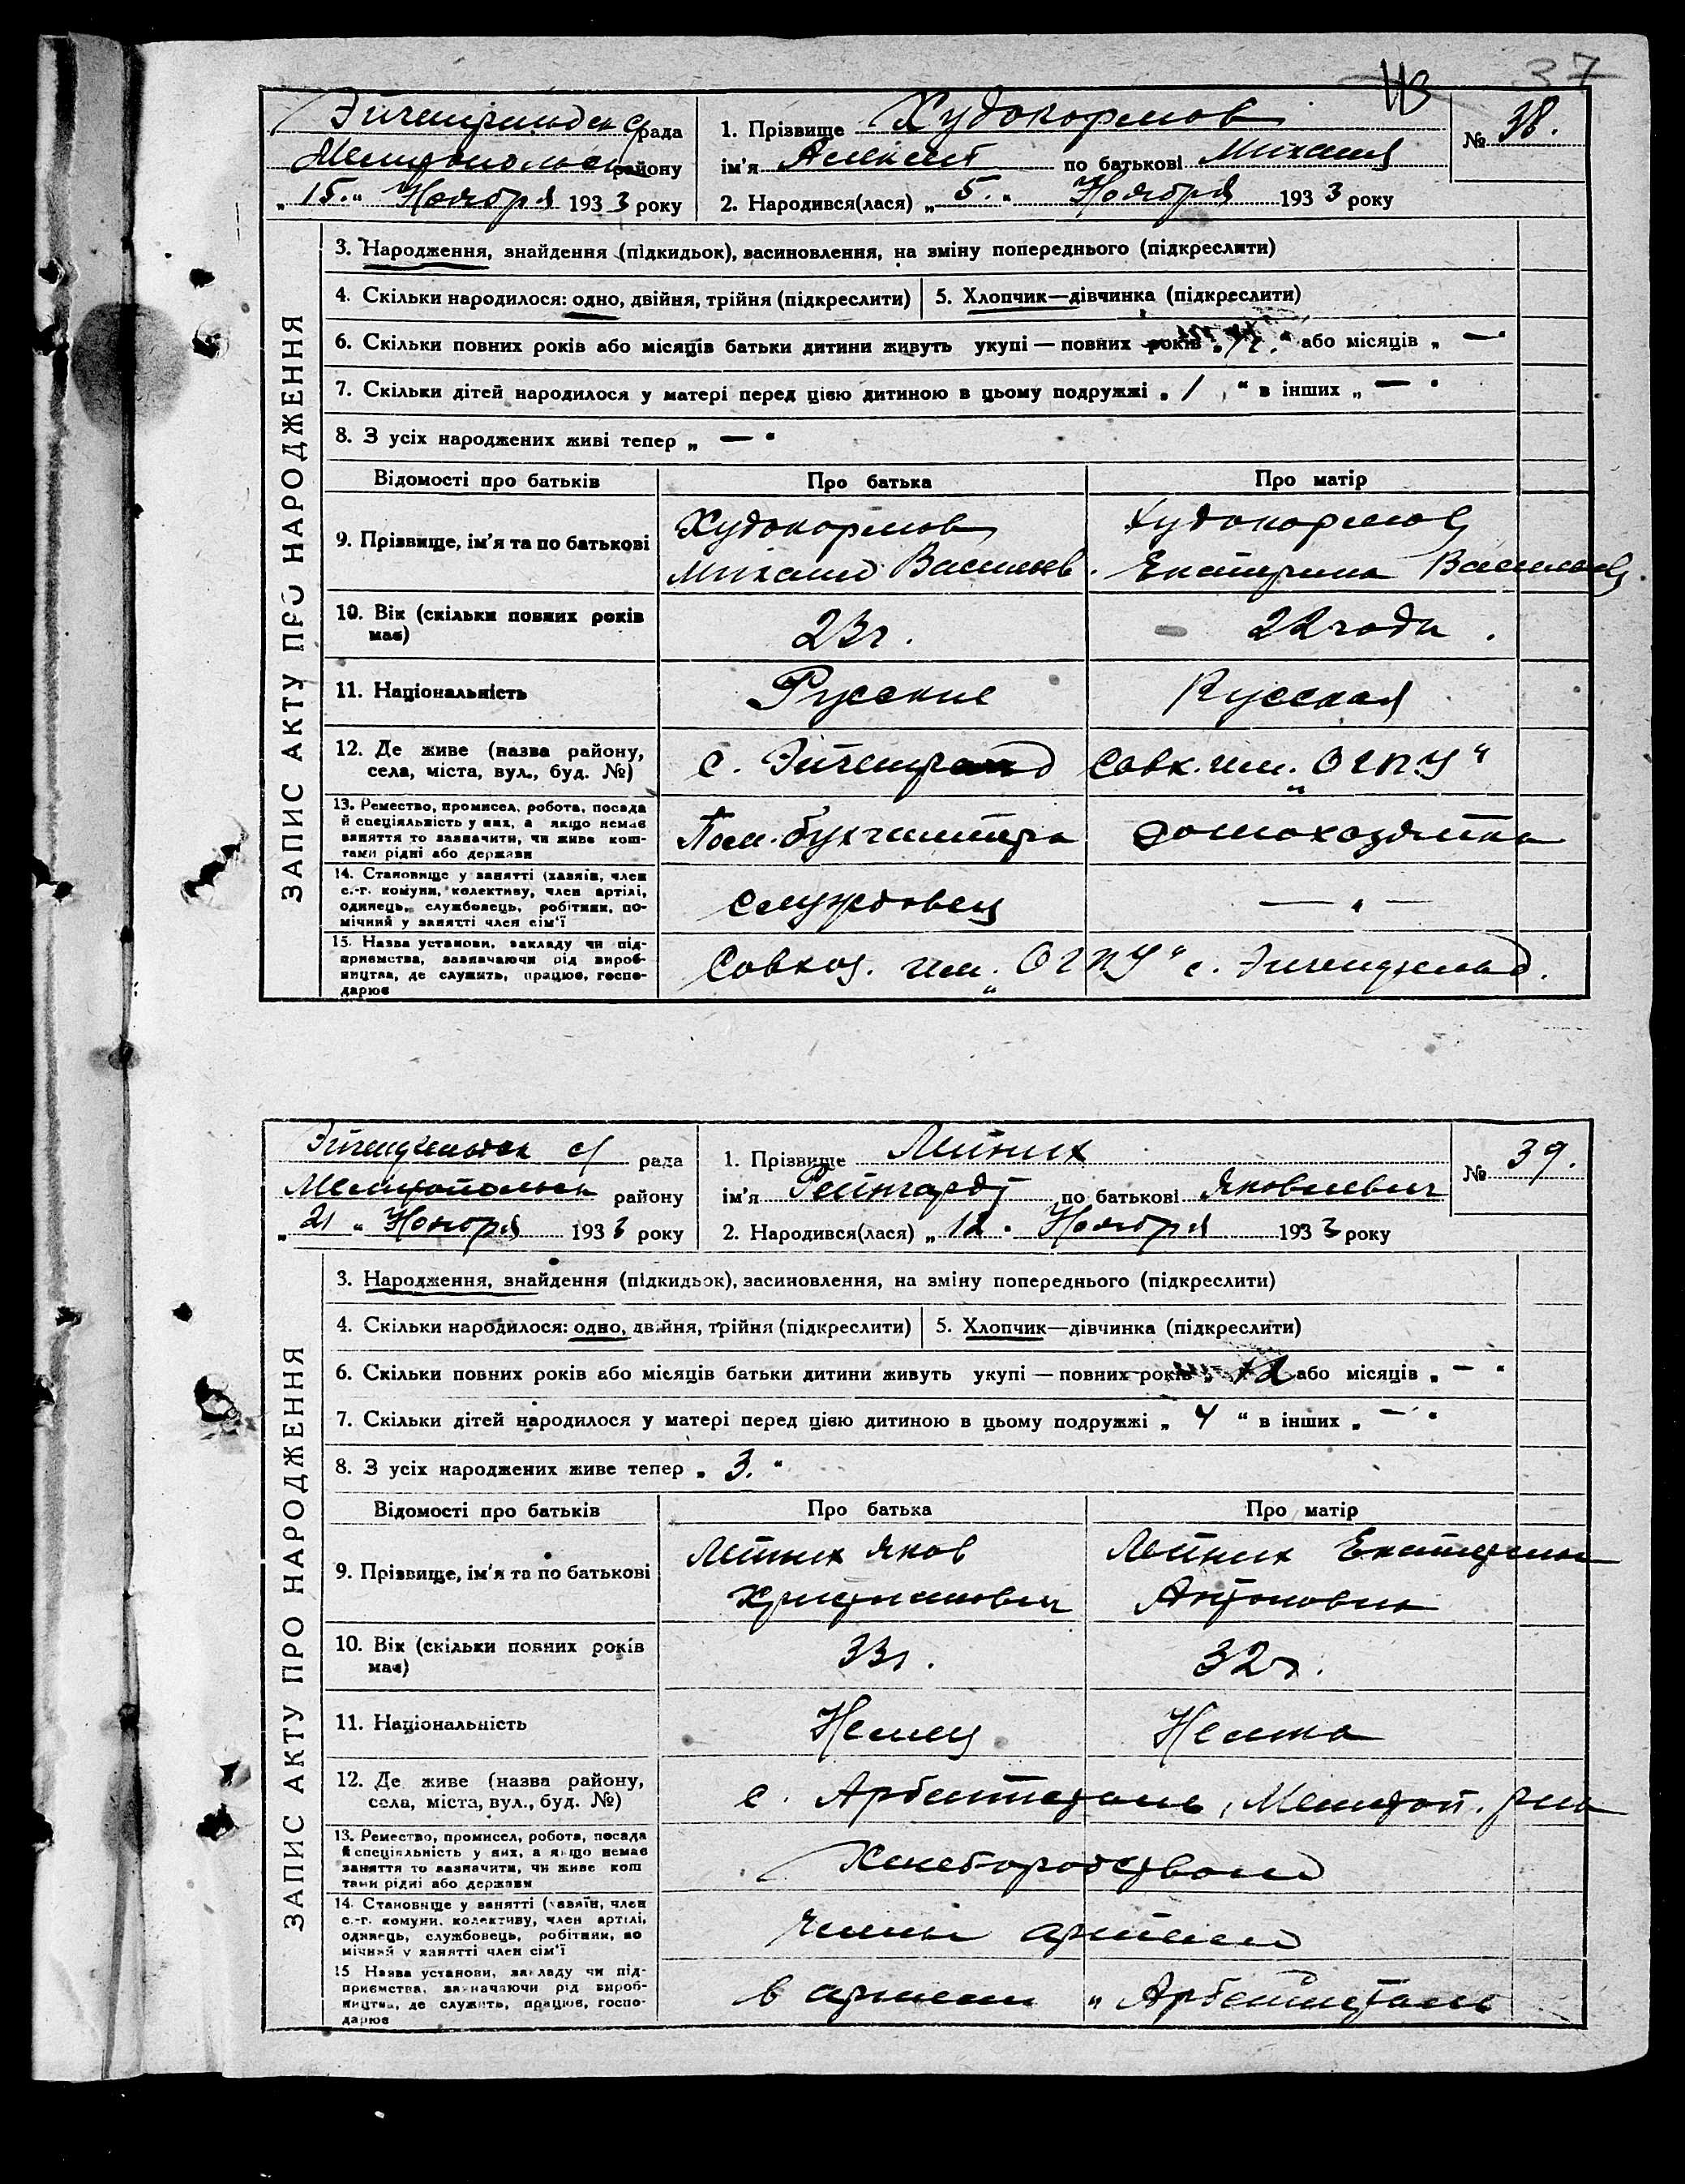 37
43
рада
Мелитопольск району
„ 15. “ Ноября 1933 року
1. Прізвище Худокормов
ім'я Алексей по батькові Михаил
2. Народився(лася) „ 5. “ Ноября 1933 року
№ 38.
ЗАПИС АКТУ ПРО НАРОДЖЕННЯ
3. Народження, знайдення (підкидьок), засиновлення, на зміну попереднього (підкреслити)
4. Скільки народилося: одно, двійня, трійня (підкреслити)
5. Хлопчик—дівчинка (підкреслити)
6. Скільки повних років або місяців батьки дитини живуть укупі — повних років або місяців „ — “
7. Скільки дітей народилося у матері перед цією дитиною в цьому подружжі „ 1 “ в інших „ — “
8. З усіх народжених живі тепер „ — “
Відомості про батьків
Про батька
Про матір
9. Прізвище, ім'я та по батькові
Худокормов
Михаил Васильев.
Худокормов
Екатерина Васильев
10. Вік (скільки повних років має)
23 г.
22 года.
11. Національність
Русские
Русская
12. Де живе (назва району,
села, міста, вул., буд. №)
с. совх. им. „ОГПУ“
13. Ремество, промисел, робота, посада
й спеціяльність у них, а якщо немає
заняття то зазначити, чи живе кош-
тами рідні або держави
Пом. бухгалтера
домохозяйка
14. Становище у занятті (хазяїн, член
с.-г. комуни, колективу, член артілі,
одинець, службовець, робітник, по-
мічний у занятті член сім'ї
службовец
— „ —
15. Назва установи, закладу чи під-
приємства, зазначаючи рід вироб-
ництва, де служить, працює, госпо-
дарює
Совхоз. им. „ОГПУ“ с.
рада
Мелитопольск району
„ 21 “ Ноября 1933 року
1. Прізвище Лейних
ім'я Рейнгардт по батькові Яковлевич
2. Народився(лася) „ 12 “ Ноября 1933 року
№ 39.
ЗАПИС АКТУ ПРО НАРОДЖЕННЯ
3. Народження, знайдення (підкидьок), засиновлення, на зміну попереднього (підкреслити)
4. Скільки народилося: одно, двійня, трійня (підкреслити)
5. Хлопчик—дівчинка (підкреслити)
6. Скільки повних років або місяців батьки дитини живуть укупі — повних років „ 12 або місяців „ — “
7. Скільки дітей народилося у матері перед цією дитиною в цьому подружжі „ 4 “ в інших „ — “
8. З усіх народжених живе тепер „ 3. “
Відомості про батьків
Про батька
Про матір
9. Прізвище, ім'я та по батькові
Лейних Яков
Христианович
Лейних Екатерина
Антоновна
10. Вік (скільки повних років має)
33 г.
32 г.
11. Національність
Немец
Немка
12. Де живе (назва району,
села, міста, вул., буд. №)
с. Арбейтсталь, Мелитоп. р-на
13. Ремество, промисел, робота, посада
й спеціяльність у них, а якщо немає
заняття то зазначити, чи живе кош
тами рідні або держави
Хлебородством
14. Становище у занятті (хазяїн, член
с.-г. комуни, колективу, член артілі,
одинець, службовець, робітник, по
мічний у занятті член сім'ї
члены артели
15 Назва установи, закладу чи під-
приємства, зазначаючи рід вироб-
ництва, де служить, працює, госпо-
дарює
в артели „Арбейтсталь